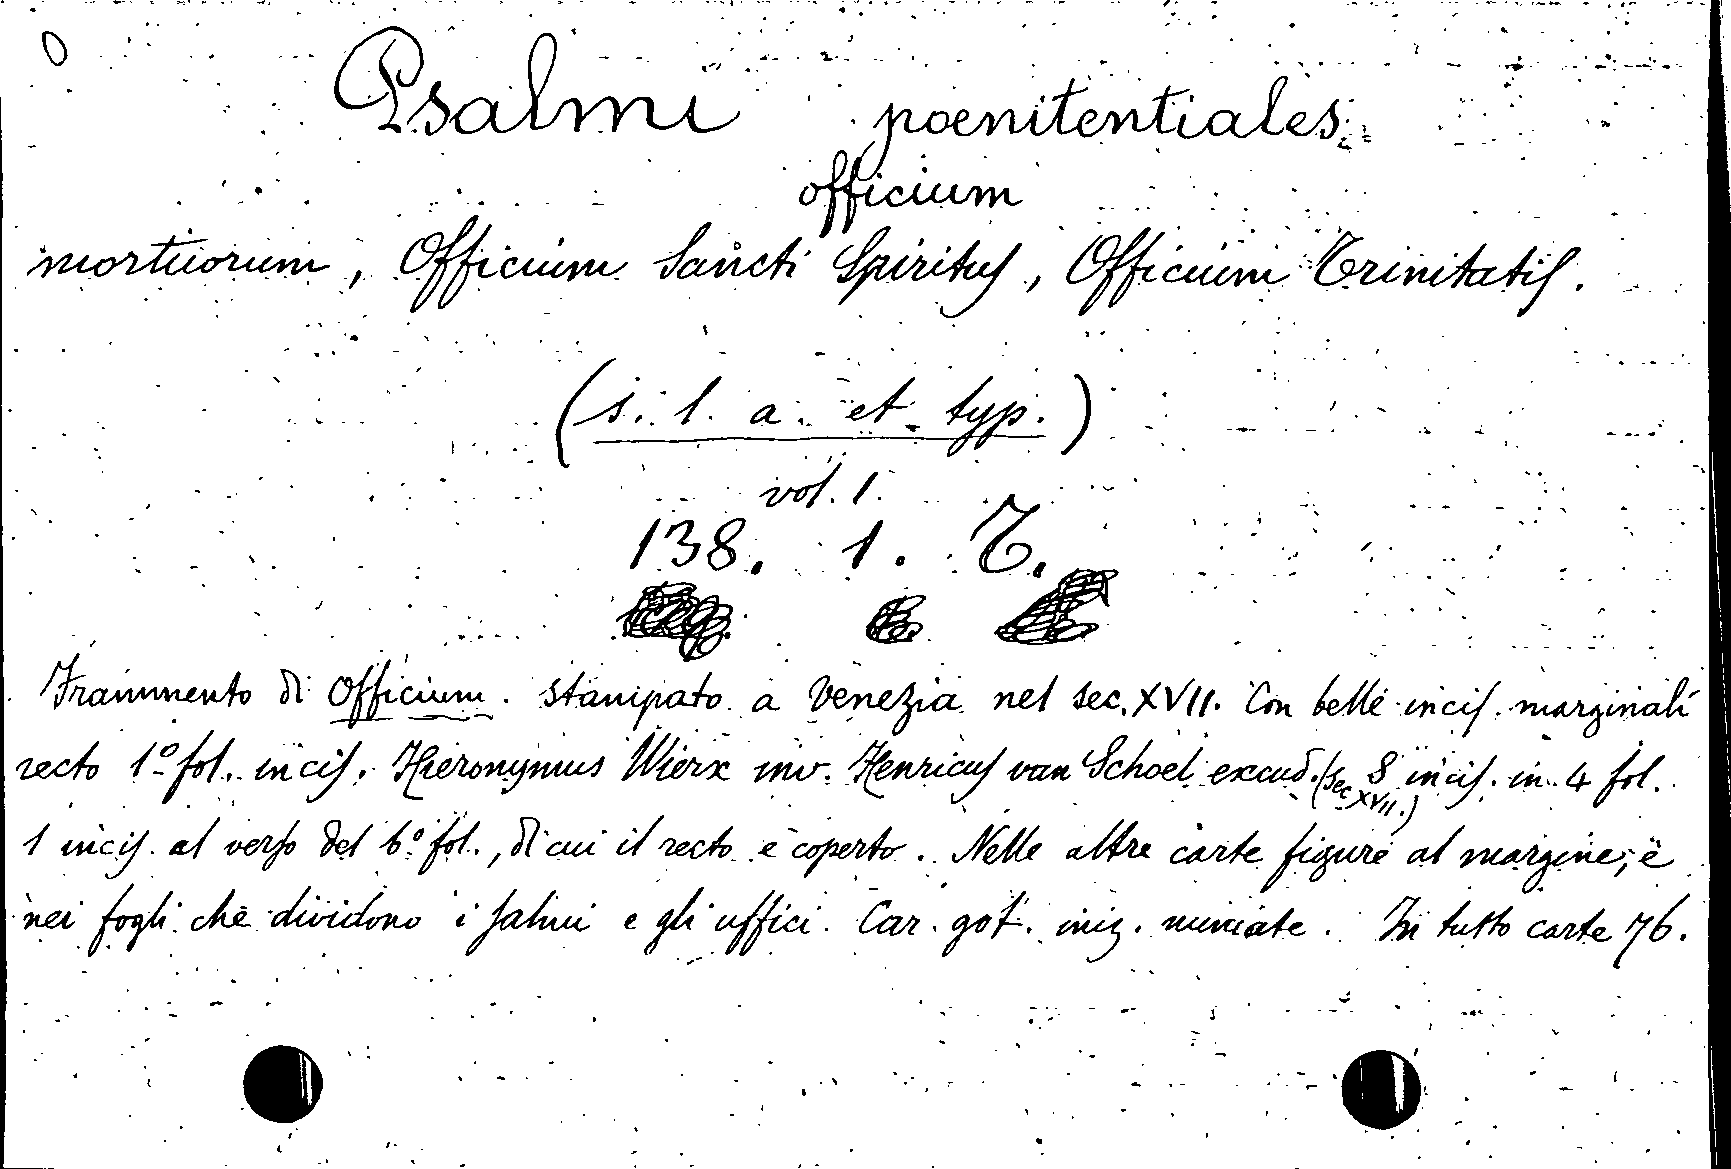 Psalmi poenitentiales
officium
mortuorum, Officium Sancti Spiritus, Officium Trinitatis.
(s. l. a. et typ.)
vol. 1.
138. 1. T.
Frammento di Officium. stampato a Venezia nel sec. XVII. Con belle incis. marginali
recto 1º fol. incis. Hieronymus Wierx inv. Henricus van Schoel excud. (sec XVII.) 8 incis. in 4 fol.
1 incis. al verso del 6º fol., di cui il recto è coperto. Nelle altre carte figure al margine, e
nei fogli che dividono i salmi e gli uffici. Car. got. iniz. miniate. In tutto carte 76.